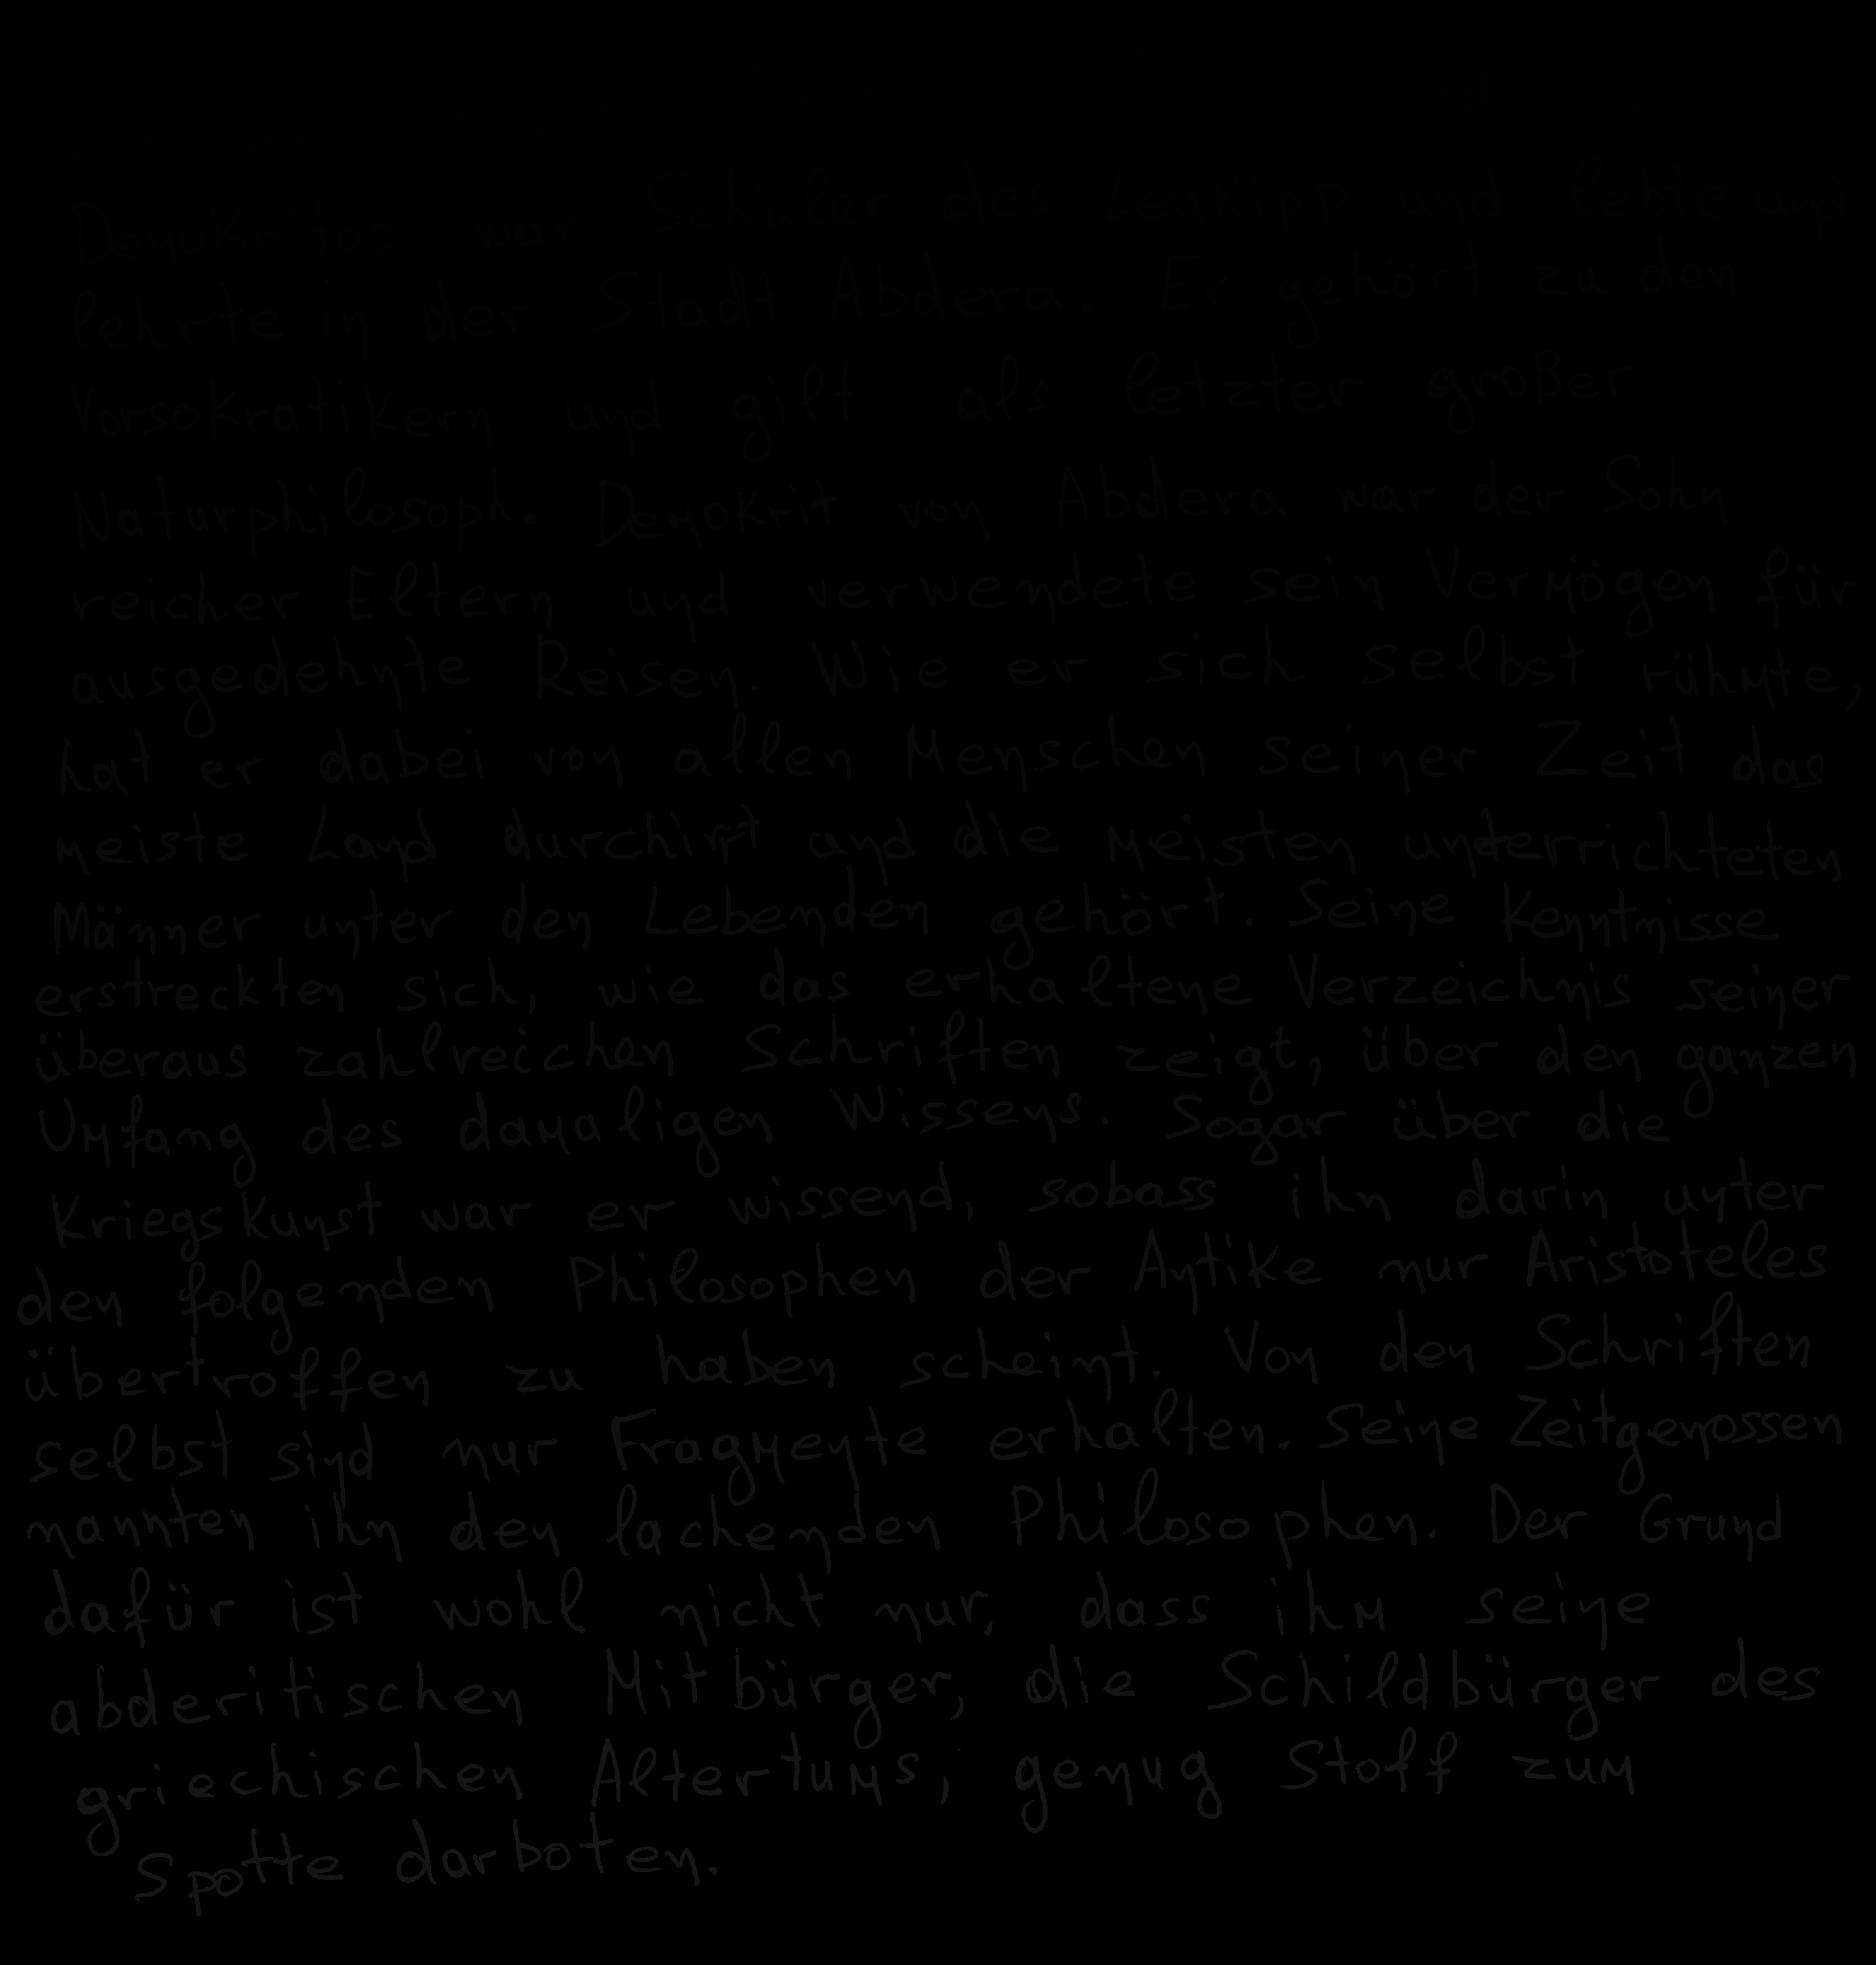 Demokritos war Schüler des Leukipp und lebte und
lehrte in der Stadt Abdera. Er gehört zu den
Vorsokratikern und gilt als letzter großer
Naturphilosoph. Demokrit von Abdera war der Sohn
reicher Eltern und verwendete sein Vermögen für
ausgedehnte Reisen. Wie er sich selbst rühmte,
hat er dabei von allen Menschen seiner Zeit das
meiste Land durchirrt und die meisten unterrichteten
Männer unter den Lebenden gehört. Seine Kenntnisse
erstreckten sich, wie das erhaltene Verzeichnis seiner
überaus zahlreichen Schriften zeigt, über den ganzen
Umfang des damaligen Wissens. Sogar über die
Kriegskunst war er wissend, sobass ihn darin unter
den folgenden Philosophen der Antike nur Aristoteles
übertroffen zu haben scheint. Von den Schriften
selbst sind nur Fragmente erhalten. Seine Zeitgenossen
nannten ihn den lachenden Philosophen. Der Grund
dafür ist wohl nicht nur, dass ihm seine
abderitischen Mitbürger, die Schildbürger des
griechischen Altertums, genug Stoff zum
Spotte darboten.